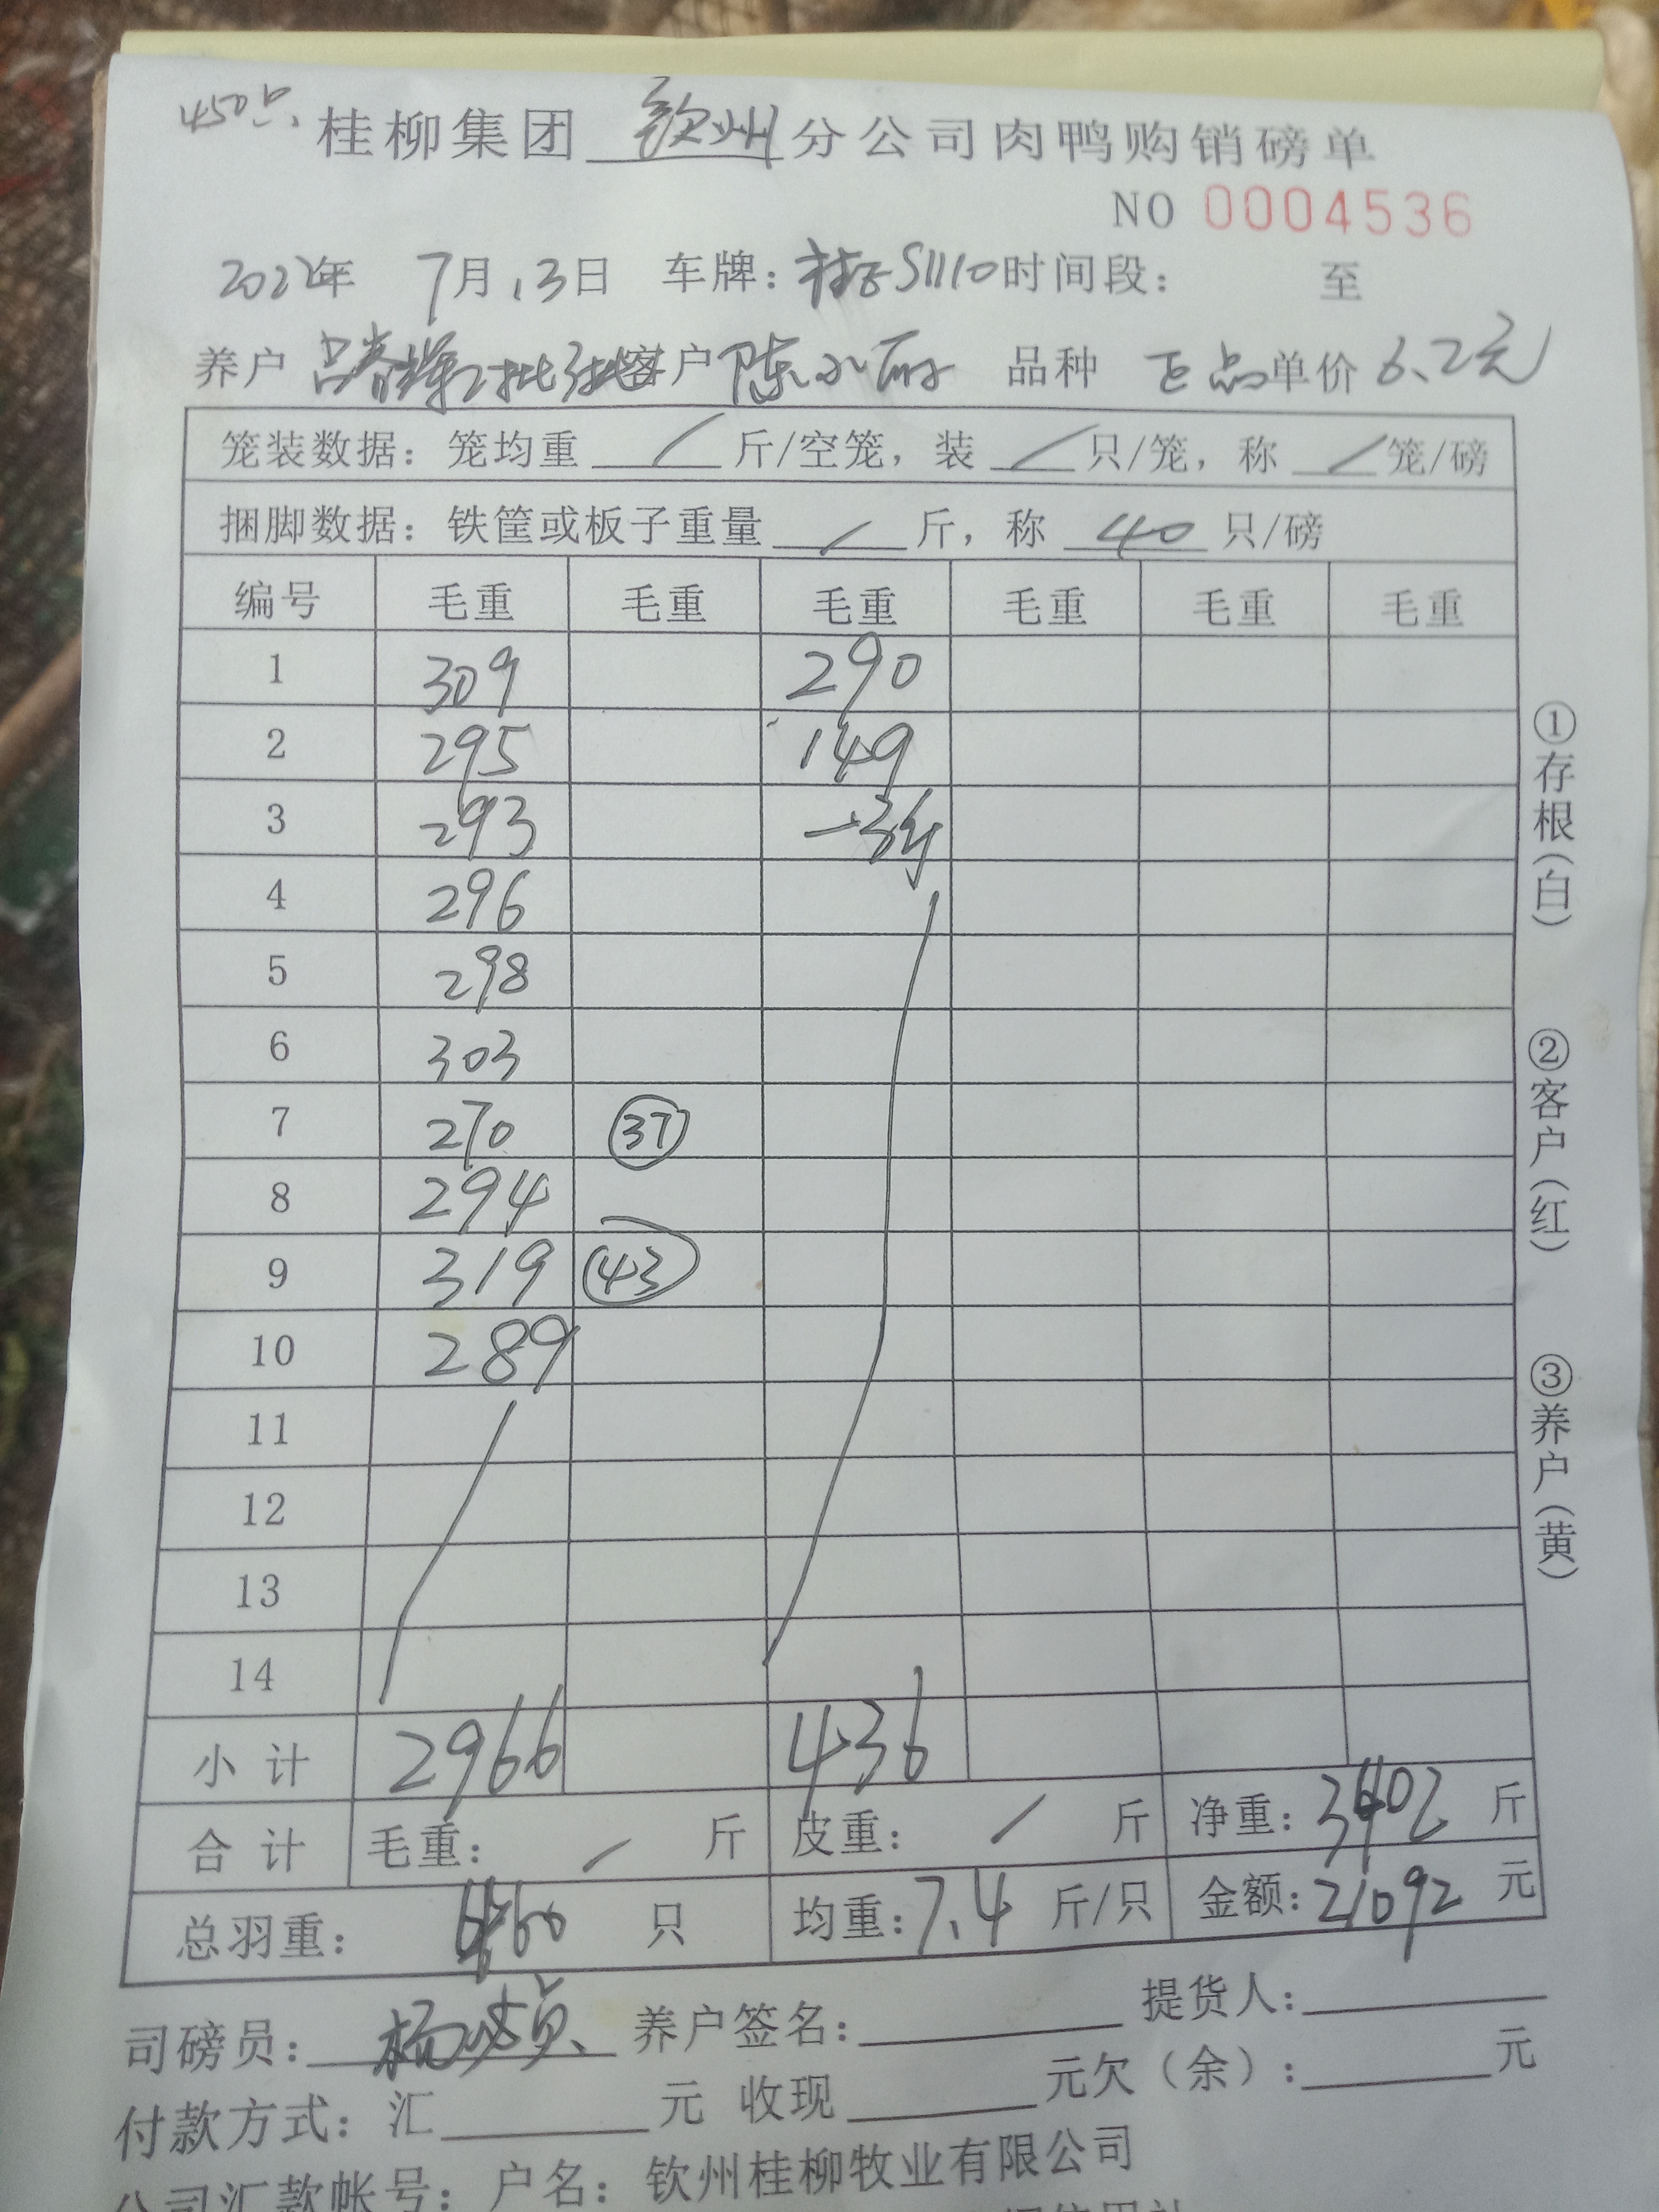 450只
桂柳集团 钦州 分公司肉鸭购销磅单
NO 0004536
2022年 7月13日 车牌：桂ES1110 时间段： 至
养户 吕春辉2批 客户 陈小丽 品种 正品 单价 6.2元
笼装数据：笼均重 / 斤/空笼，装 / 只/笼，称 / 笼/磅
捆脚数据：铁筐或板子重量 / 斤，称 40 只/磅
编号 毛重 毛重 毛重 毛重 毛重 毛重
1 309 290
2 295 149
3 293 -3斤
4 296
5 298
6 303
7 270 37
8 294
9 319 43
10 289
11
12
13
14
小计 2966 436
合计 毛重： / 斤 皮重： / 斤 净重：3402 斤
总羽重： 460 只 均重：7.4 斤/只 金额：21092 元
司磅员： 养户签名： 提货人：
付款方式：汇 元 收现 元欠（余）： 元
公司汇款帐号：户名：钦州桂柳牧业有限公司
①存根（白）
②客户（红）
③养户（黄）